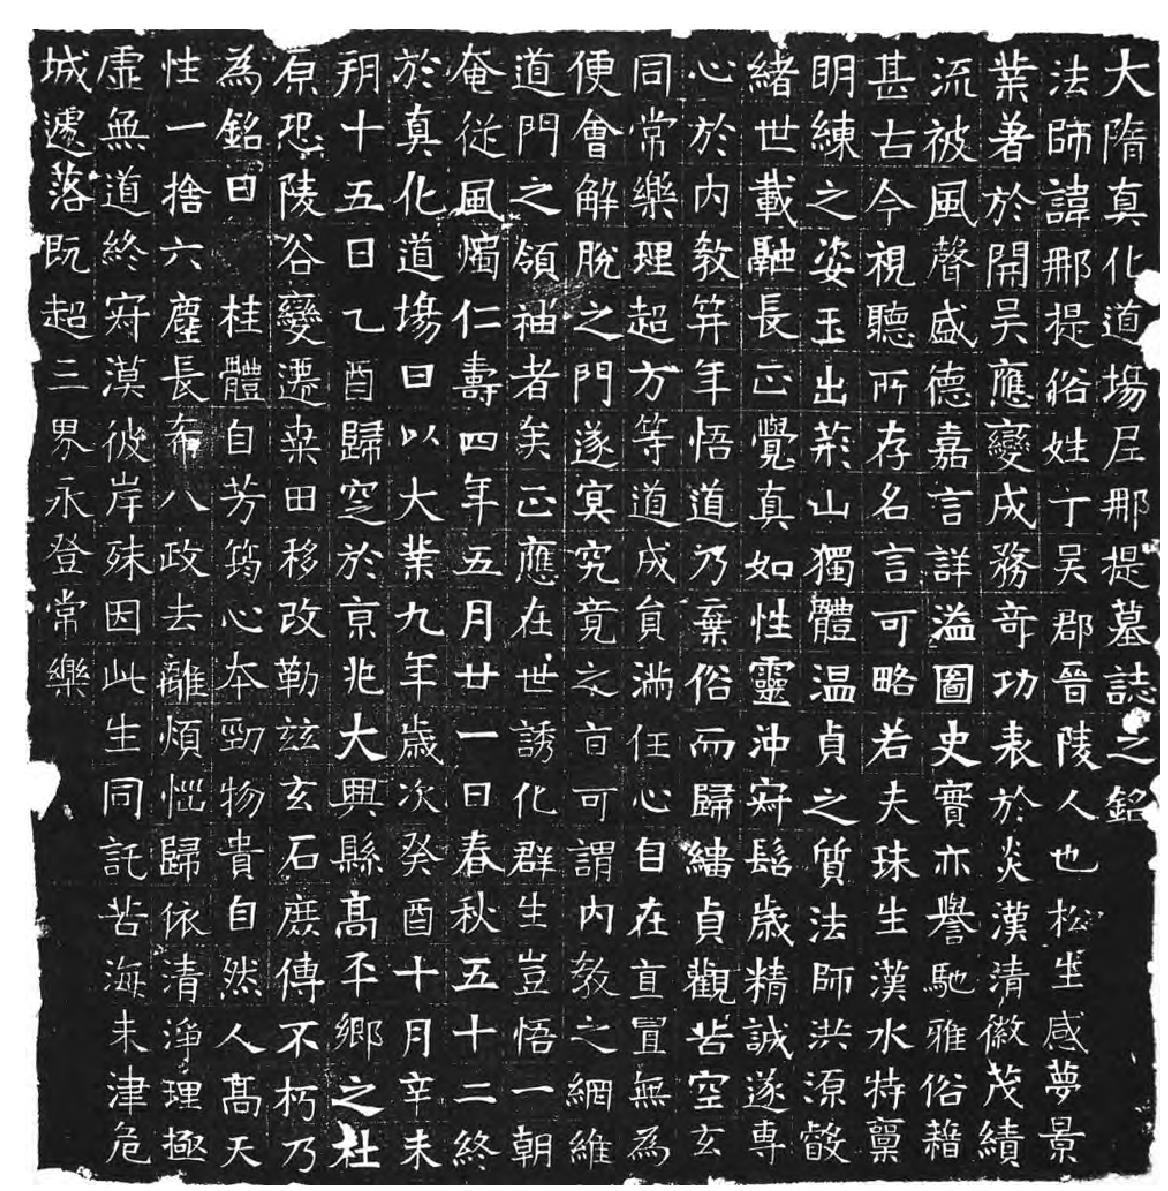 大隋真化道場尼那提墓誌之銘
法師諱那提俗姓丁吳郡晉陵人也松生感夢景
業著於開吳應變成務奇功表於炎漢清徽茂績
流被風聲盛德嘉言詳溢圖史實亦譽馳雅俗藉
甚古今視聽所存名言可略若夫珠生漢水特稟
明練之姿玉出荊山獨體温貞之質法師洪源散
緒世載融長正覺真如性靈沖寂髫歲精誠遂專
心於內教笄年悟道乃棄俗而歸繡貞觀苦空玄
同常樂理超方等道成員滿任心自在直置無為
便會解脫之門遂冥究竟之旨可謂內教之網維
道門之領袖者矣正應在世誘化群生豈悟一朝
奄從風燭仁壽四年五月廿一日春秋五十二終
於真化道場曰以大業九年歲次癸酉十月辛未
朔十五日乙酉歸窆於京兆大興縣高平鄉之杜
原恐陵谷變遷桒田移改勒兹玄石庶傳不朽乃
為銘曰 桂體自芳筠心本勁物貴自然人高天
性一捨六塵長希八政去離煩惱歸依清淨理極
虛無道終寂漠彼岸殊因此生同託苦海未津危
城遽落既超三界永登常樂